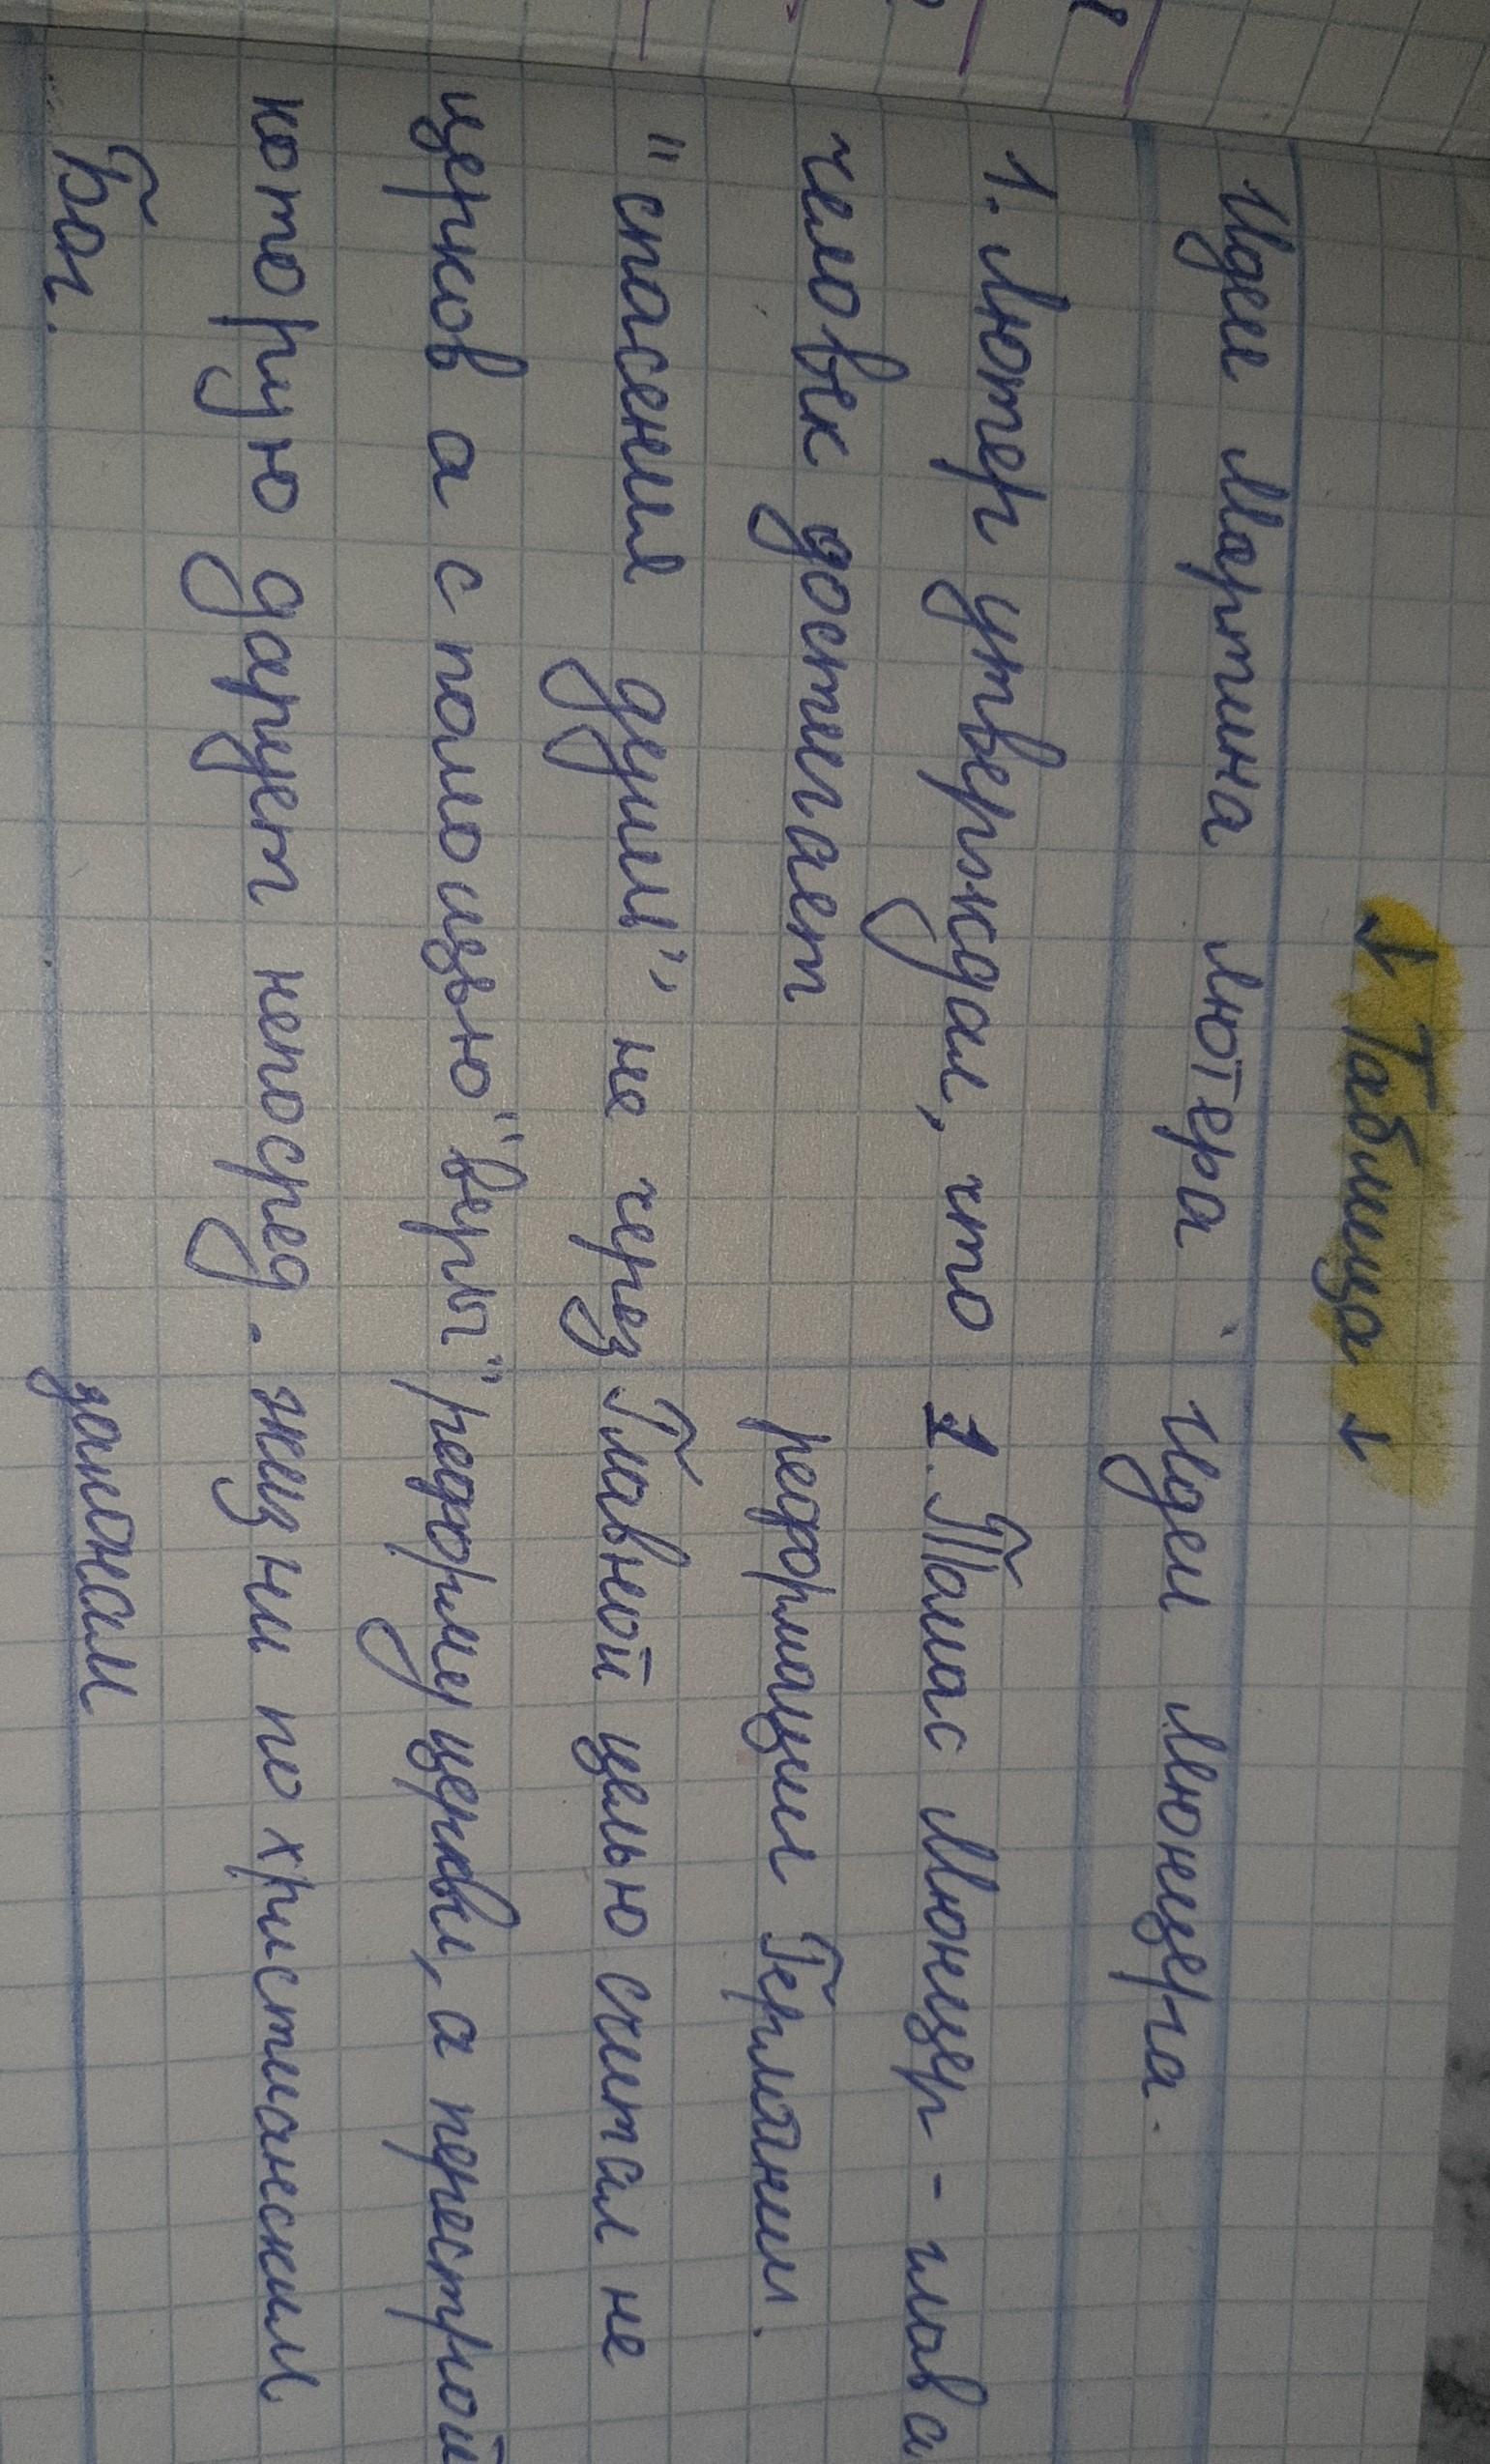 ↓ Таблица ↓
Идеи Мартина Лютера
Идеи Мюнцера.
1. Лютер утверждал, что
человек достигает
"спасения души" не через
церков а с помощью "веры"
которую дарует непосред.
Бог.
1. Томас Мюнцер - глава
реформации Германии.
Главной целью считал не
реформу церкви, а перестрой
жизни по христианским
законам